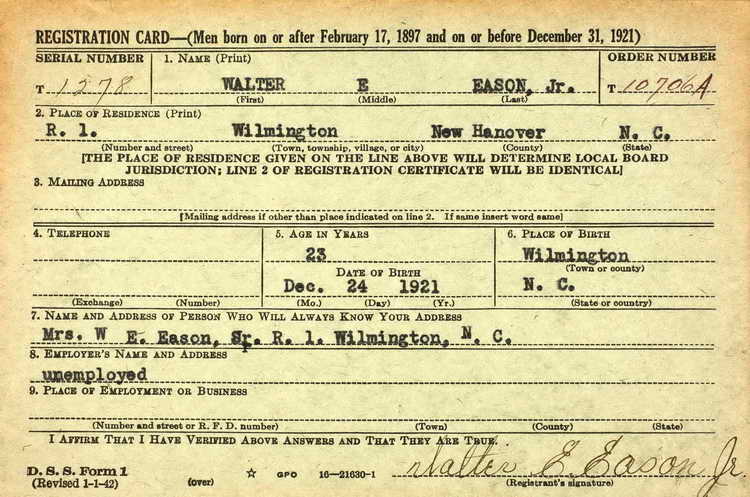 REGISTRATION CARD—(Men born on or after February 17, 1897 and on or before December 31, 1921)
SERIAL NUMBER 1. NAME (Print) ORDER NUMBER
T 1278 WALTER E EASON, Jr. T 10706A
(First) (Middle) (Last)
2. PLACE OF RESIDENCE (Print)
R. 1. Wilmington New Hanover N. C.
(Number and street) (Town, township, village, or city) (County) (State)
[THE PLACE OF RESIDENCE GIVEN ON THE LINE ABOVE WILL DETERMINE LOCAL BOARD
JURISDICTION; LINE 2 OF REGISTRATION CERTIFICATE WILL BE IDENTICAL]
3. MAILING ADDRESS
[Mailing address if other than place indicated on line 2. If same insert word same]
4. TELEPHONE 5. AGE IN YEARS 6. PLACE OF BIRTH
23 Wilmington
DATE OF BIRTH (Town or county)
Dec. 24 1921 N. C.
(Exchange) (Number) (Mo.) (Day) (Yr.) (State or country)
7. NAME AND ADDRESS OF PERSON WHO WILL ALWAYS KNOW YOUR ADDRESS
Mrs. W E. Eason, Sr. R. 1. Wilmington, N. C.
8. EMPLOYER'S NAME AND ADDRESS
unemployed
9. PLACE OF EMPLOYMENT OR BUSINESS
(Number and street or R. F. D. number) (Town) (County) (State)
I AFFIRM THAT I HAVE VERIFIED ABOVE ANSWERS AND THAT THEY ARE TRUE.
D. S. S. Form 1 GPO 16—21630-1 Walter E Eason Jr.
(Revised 1-1-42) (over) (Registrant's signature)